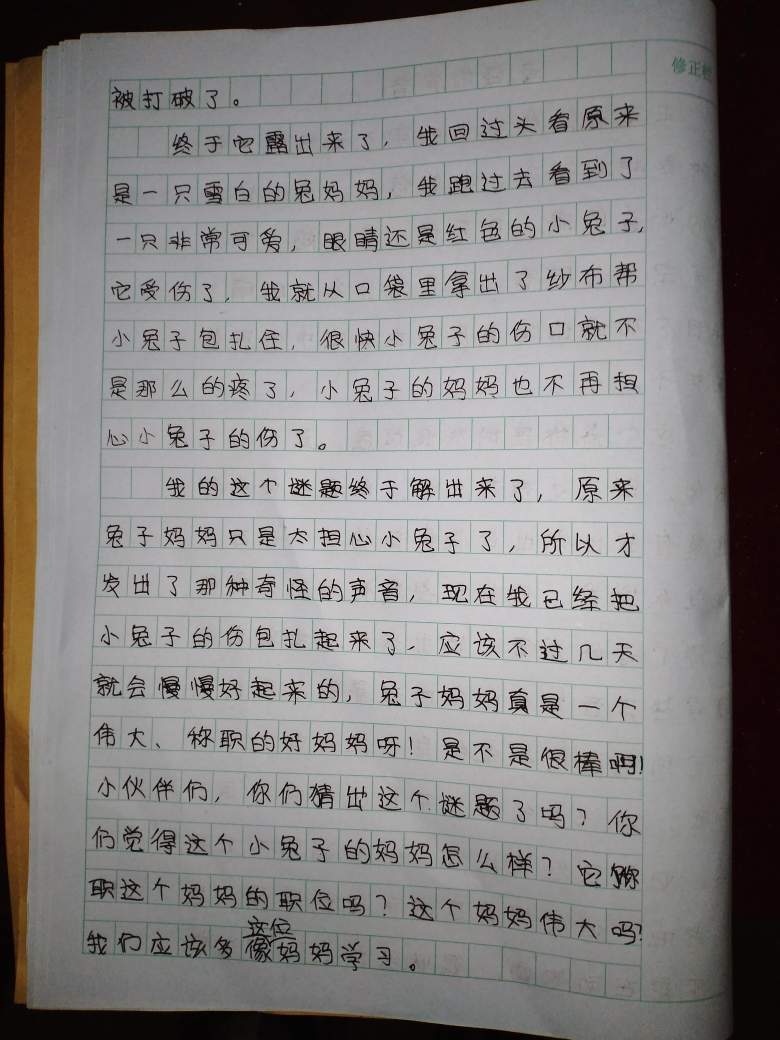 修正栏
被打破了。
终于它露出来了，我回过头看原来
是一只雪白的兔妈妈，我跑过去看到了
一只非常可爱，眼睛还是红色的小兔子，
它受伤了，我就从口袋里拿出了纱布帮
小兔子包扎住，很快小兔子的伤口就不
是那么的疼了，小兔子的妈妈也不再担
心小兔子的伤了。
我的这个谜题终于解出来了，原来
兔子妈妈只是太担心小兔子了，所以才
发出了那种奇怪的声音，现在我已经把
小兔子的伤包扎起来了，应该不过几天
就会慢慢好起来的，兔子妈妈真是一个
伟大、称职的好妈妈呀！是不是很棒啊！
小伙伴们，你们猜出这个谜题了吗？你
们觉得这个小兔子的妈妈怎么样？它称
职这个妈妈的职位吗？这个妈妈伟大吗？
我们应该多像这位妈妈学习。